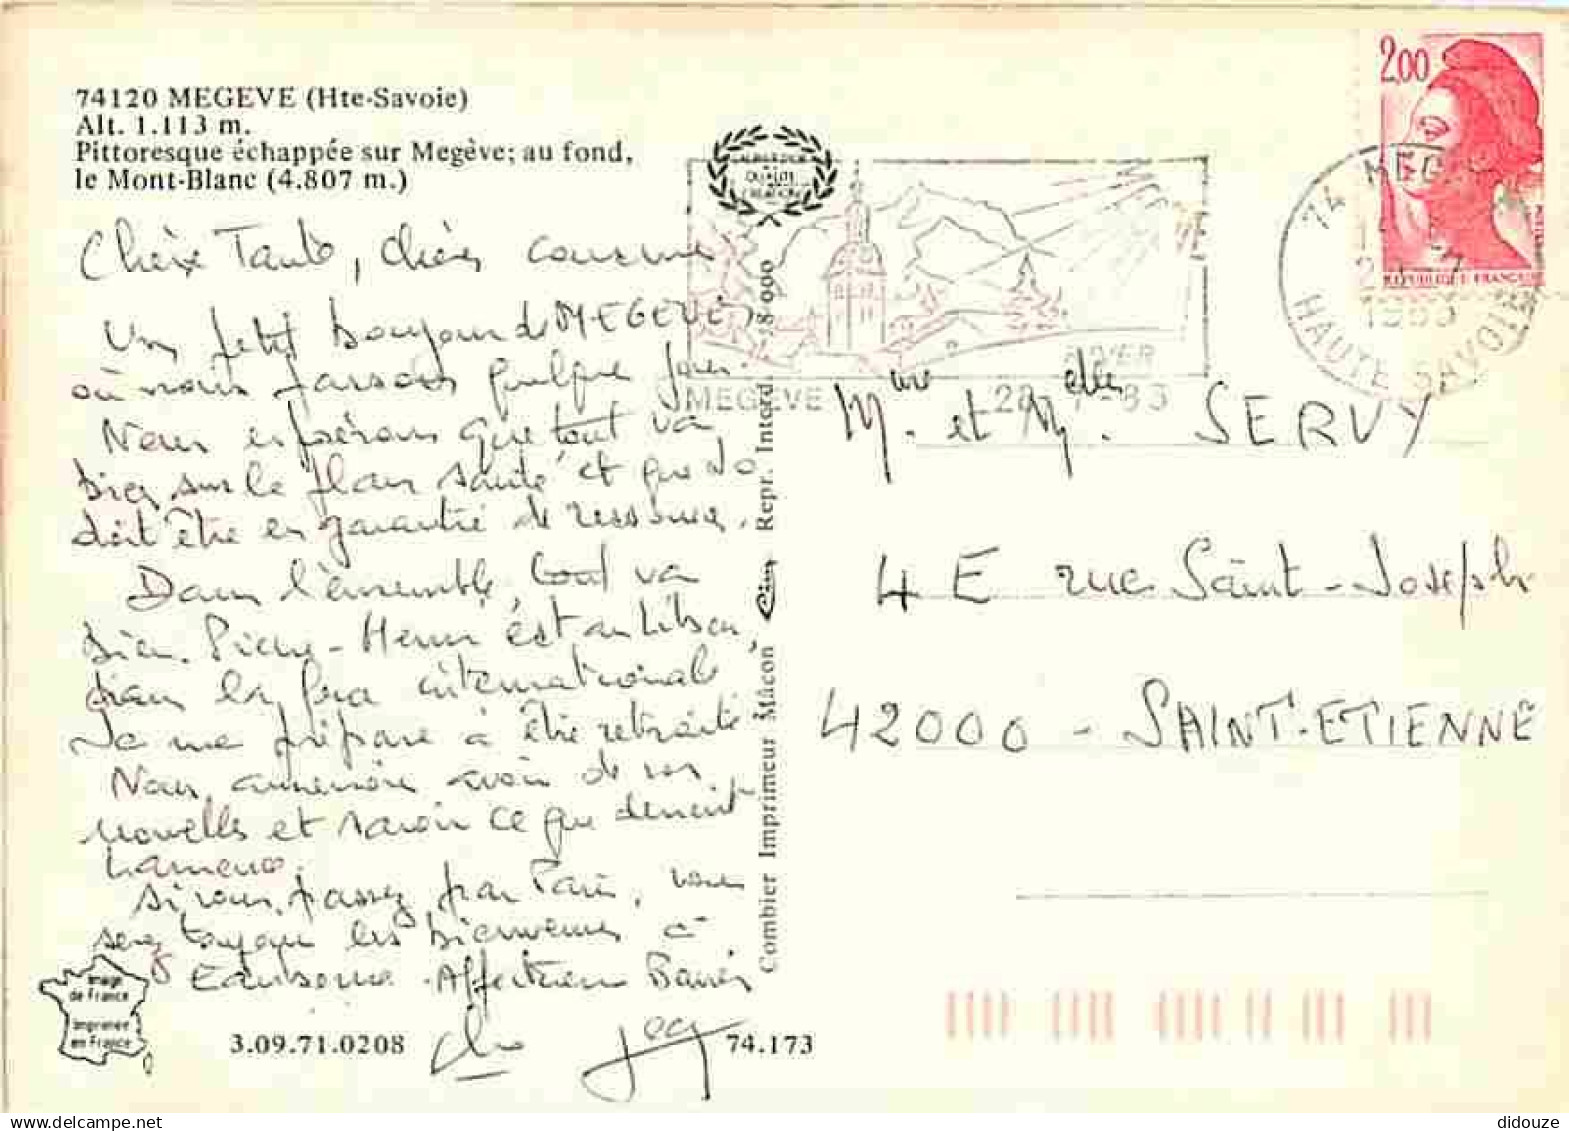 74120 MEGEVE (Hte-Savoie)
Alt. 1.113 m.
Pittoresque échappée sur Megève; au fond,
le Mont-Blanc (4.807 m.)
Chère Tante, chères cousines
Un petit bonjour de MEGEVE,
où nous passons quelque jours.
Nous espérons que tout va
bien sur le plan santé et que
doit être en garantie de
Dans l'ensemble, tout va
bien. Pierre-Henri est au
dans la international
Je me prépare à être retraité
Nous aimerions avoir de vos
nouvelles et savoir ce que devient
Si vous passez par Paris, vous
serez toujours les bienvenues à
Affectueux Baisers
2.00
REPUBLIQUE FRANÇAISE
74 MEGEVE
HAUTE SAVOIE
MEGEVE
Mme et Melle. SERVY
4 E rue Saint-Joseph
42000 - SAINT-ETIENNE
Combier Imprimeur Mâcon Cim Repr. Interd. -28 000
Image
de France
Imprimée
en France
3.09.71.0208
74.173
didouze